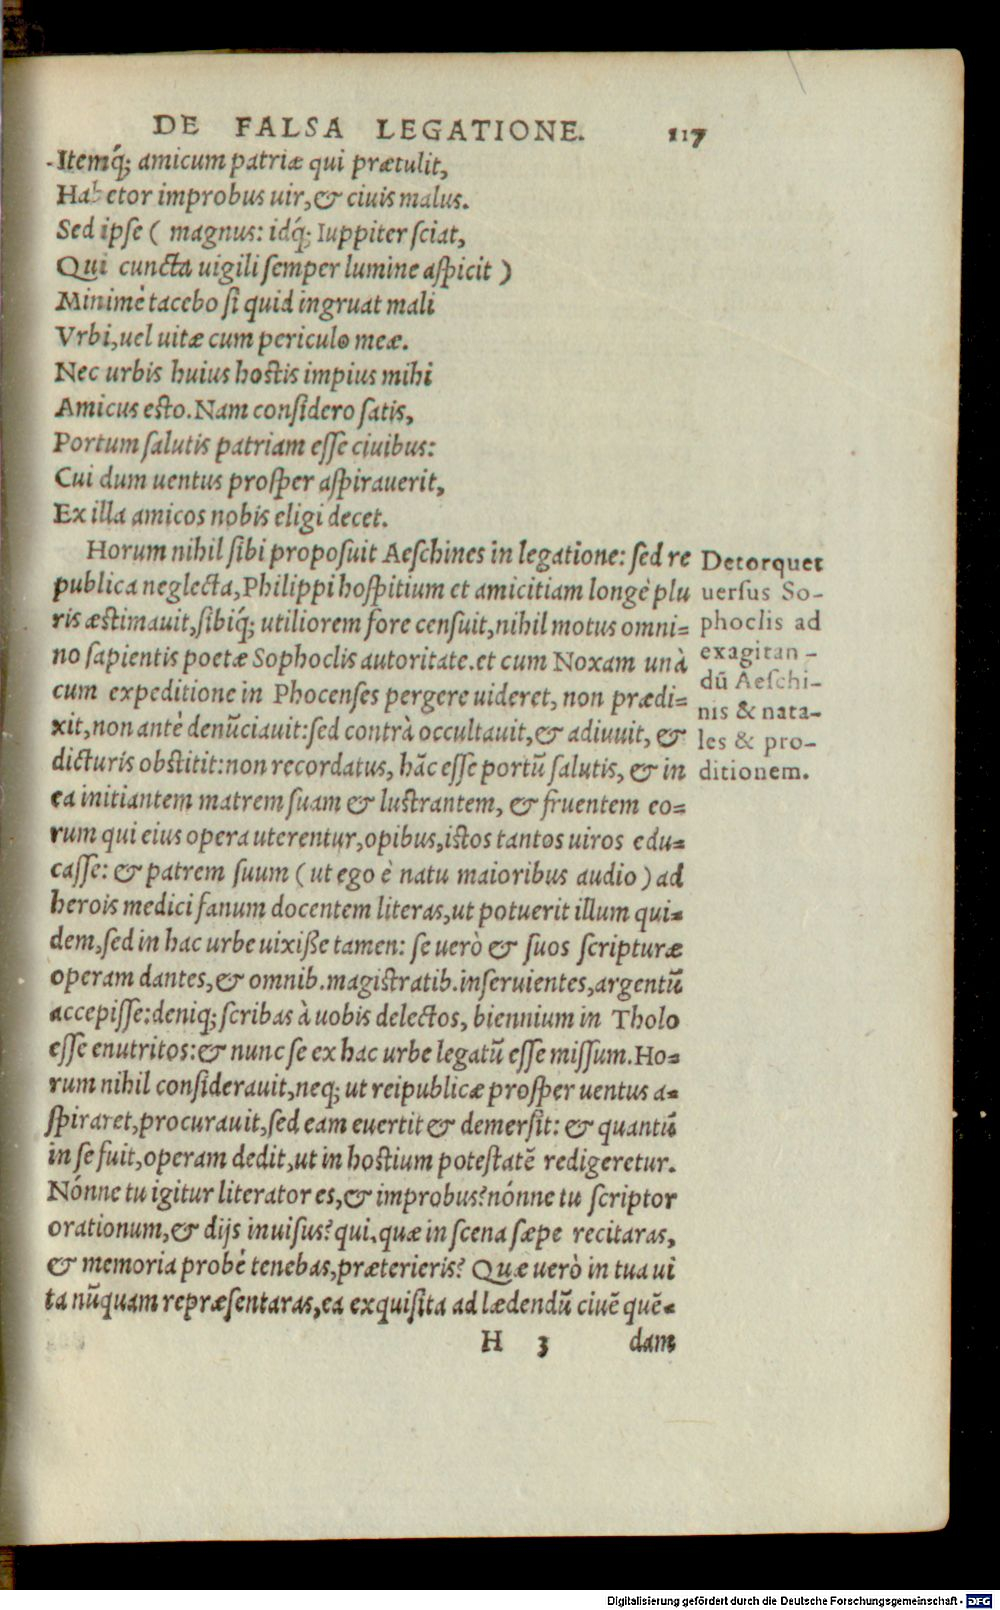 DE FALSA LEGATIONE. 117
Itemq́; amicum patriæ qui prætulit,
Habetor improbus uir, & ciuis malus.
Sed ipse ( magnus: idq́; Iuppiter sciat,
Qui cuncta uigili semper lumine aspicit )
Minimè tacebo si quid ingruat mali
Vrbi, uel uitæ cum periculo meæ.
Nec urbis huius hostis impius mihi
Amicus esto. Nam considero satis,
Portum salutis patriam esse ciuibus:
Cui dum uentus prosper aspirauerit,
Ex illa amicos nobis eligi decet.
Horum nihil sibi proposuit Aeschines in legatione: sed re
publica neglecta, Philippi hospitium et amicitiam longè plu
ris æstimauit, sibiq́; utiliorem fore censuit, nihil motus omni=
no sapientis poetæ Sophoclis autoritate. et cum Noxam unà
cum expeditione in Phocenses pergere uideret, non prædi=
xit, non antè denũciauit: sed contrà occultauit, & adiuuit, &
dicturis obstitit: non recordatus, hãc esse portũ salutis, & in
ea initiantem matrem suam & lustrantem, & fruentem eo=
rum qui eius opera uterentur, opibus, istos tantos uiros edu=
casse: & patrem suum ( ut ego è natu maioribus audio ) ad
herois medici fanum docentem literas, ut potuerit illum qui=
dem, sed in hac urbe uixiße tamen: se uerò & suos scripturæ
operam dantes, & omnib. magistratib. inseruientes, argentũ
accepisse: deniq; scribas à uobis delectos, biennium in Tholo
esse enutritos: & nunc se ex hac urbe legatũ esse missum. Ho=
rum nihil considerauit, neq; ut reipublicæ prosper uentus a=
spiraret, procurauit, sed eam euertit & demersit: & quantũ
in se fuit, operam dedit, ut in hostium potestatẽ redigeretur.
Nónne tu igitur literator es, & improbus? nónne tu scriptor
orationum, & dijs inuisus? qui, quæ in scena sæpe recitaras,
& memoria probè tenebas, præterieris? Quæ uerò in tua ui
ta nũquam repræsentaras, ea exquisita ad lædendũ ciuẽ quẽ=
H 3 dam
Detorquet
uersus So-
phoclis ad
exagitan-
dũ Aeschi-
nis & nata-
les & pro-
ditionem.
Digitalisierung gefördert durch die Deutsche Forschungsgemeinschaft - DFG